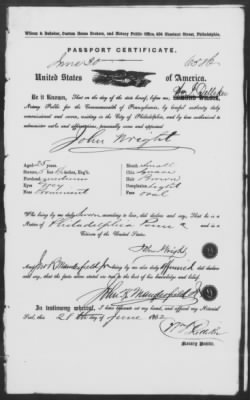 Wilson & Delleker, Custom House Brokers, and Notary Public Office, 236 Chestnut Street, Philadelphia.
PASSPORT CERTIFICATE.
June 30
United States of America.
Be it Known, That on the day of the date hereof, before me,
Notary Public for the Commonwealth of Pennsylvania, by lawful authority duly
commissioned and sworn, residing in the City of Philadelphia, and by law authorized to
administer oaths and affirmations, personally came and appeared
John Wright
Aged 25 years
Stature 5 feet inches, Eng'h
Forehead medium
Eyes Grey
Nose Prominent
Mouth Small
Chin Square
Hair Brown
Complexion Light
Face oval
Who being by me duly sworn according to law, did declare and say, That he is a
Native of Philadelphia Penna
Citizen of the United States.
John Wright
And Jno R Manderfield Jr being by me also duly affirmed did declare
and say, that the facts above stated are true to the best of his knowledge and belief.
John R Manderfield Jr
In testimony whereof, I have hereunto set my hand, and affixed my Notarial
Seal, this 28th day of June 1862
Notary Public.